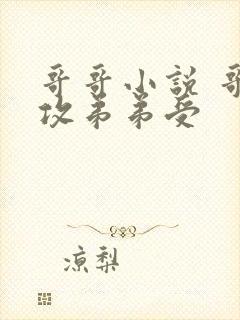 哥哥小说 哥
攻弟弟受
凉梨